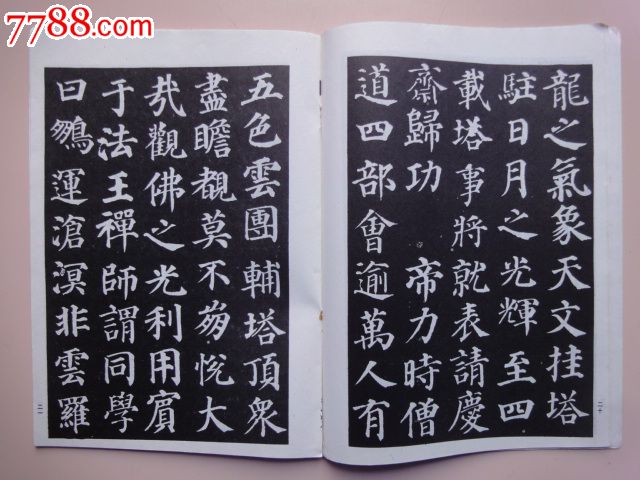 7788.com
龍之氣象天文挂塔
駐日月之光輝至四
載塔事將就表請慶
齋歸功 帝力時僧
道四部會逾萬人有
二十
五色雲團輔塔頂衆
盡瞻覩莫不夠悅大
㢤觀佛之光利用賓
于法王禪師謂同學
曰鵩運滄溟非雲羅
二一